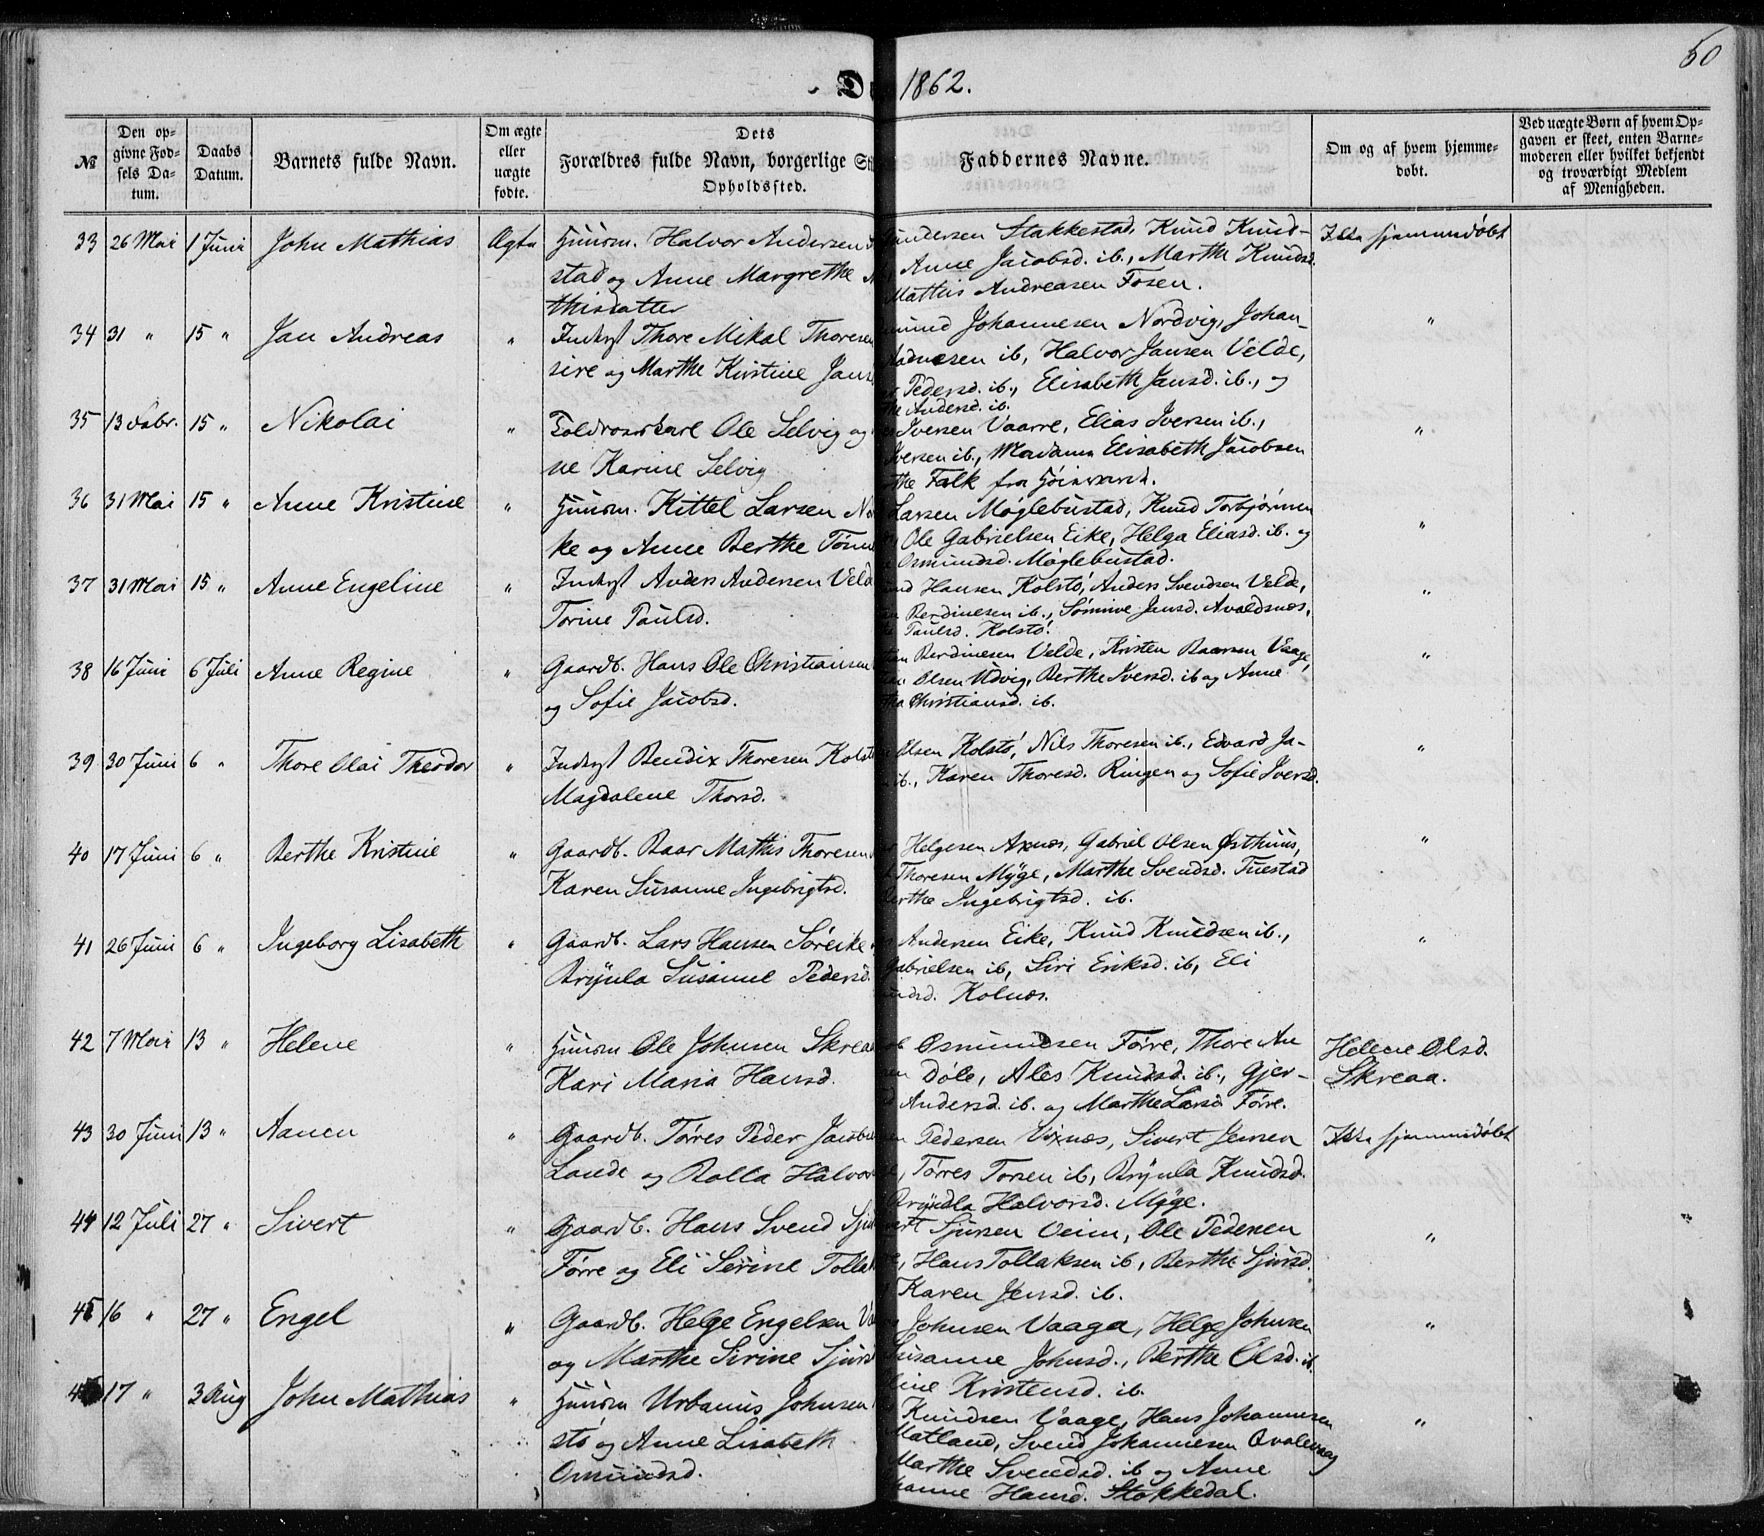 50
1862.
№
Den opgivne Fødsels Datum.
Daabs Datum.
Barnets fulde Navn.
Om ægte eller uægte fødte.
Dets Forældres fulde Navn, borgerlige
Opholdssted.
Faddernes Navne.
Om og af hvem hjemmedøbt.
Ved uægte Børn af hvem Opgaven er skeet, enten Barnemoderen eller hvilket bekjendt og troværdigt Medlem af Menigheden.
33 26 Mai 1 Juni John Mathias Ægte Huusm. Halvor Andersen
stad og Anne Margrethe
thisdatter
Gundersen Stakkestad, Knud Knud-
Anne Jacobsd. ib., Marthe Knudsd.
Mattis Andreasen Fosen.
Ikke hjemmedøbt
34 31 " 15 " Jan Andreas " Inderst Thore Mikal Thoresen
sire og Marthe Kirstine Jans
mund Johannesen Nordvig, Johan-
Aadnesen ib, Halvor Jansen Velde,
Pedersd. ib., Elisabeth Jansd. ib., og
Andersd. ib.
"
35 13 Febr. 15 " Nikolai " Toldroerskarl Ole Selvig og
ne Karine Selvig
Iversen Vaarre, Elias Iversen ib.,
Iversen ib., Madame Elisabeth Jacobsen
the Falk fra Høievarde.
"
36 31 Mai 15 " Anne Kristine " Huusm. Kittel Larsen
ke og Anne Berthe Tønne
Larsen Møglebustad, Knud Torbjørnsen
Ole Gabrielsen Eike, Helga Eliasd. ib. og
Osmundsd. Møglebustad.
"
37 31 Mai 15 " Anne Engeline " Inderst Anders Andersen Veld
Torine Paulsd.
und Hansen Kolstø, Anders Svendsen Velde,
Berdinesen ib., Sømine Jansd. Avaldsnæs,
Paulsd. Kolstø.
"
38 16 Juni 6 Juli Anne Regine " Gaardb. Hans Ole Christiansen
og Sofie Jacobsd.
tian Berdinesen Velde, Kristen Baarsen Vaage,
Olsen Udvig, Berthe Iversd. ib og Anne
Christiansd. ib.
"
39 30 Juni 6 " Thore Olai Theodor " Inderst Bendix Thoresen Kolst
Magdalene Thorsd.
Olsen Kolstø, Nils Thoresen ib., Edvard Ja-
ib., Karen Thoresd. Ringen og Sofie Iversd.
"
40 17 Juni 6 " Berthe Kristine " Gaardb. Baar Mathis Thoresen
Karen Susanne Ingebrigtsd.
Helgesen Axnæs, Gabriel Olsen Østhuus,
Thoresen Myge, Marthe Svendsd. Tuestad
erthe Ingebrigtsd. ib.
"
41 26 Juni 6 " Ingeborg Lisabeth " Gaardb. Lars Hansen Søreike
Brynla Susanne Pedersd.
Andersen Eike, Knud Knudsen ib.,
Gabrielsen ib, Siri Eriksd. ib, Eli
undsd. Kolnæs.
"
42 7 Mai 13 " Helene " Huusm Ole Johnsen Skrea
Kari Maria Hansd.
Osmundsen Førre, Thore An
Døle, Ales Knudsd. ib., Gjer-
Andersd. ib. og Marthe Larsd Førre.
Helene Olsd.
Skreaa.
43 30 Juni 13 " Aanen " Gaardb. Tørres Peder Jacobs
Lande og Bolla Halvor
Pedersen Vixnæs, Sivert Jensen
Tørres Torsen ib, Brynla Knudsd.
Bryndla Halvorsd. Myge.
Ikke hjemmedøbt
44 12 Juli 27 " Sivert " Gaardb. Hans Svend Sju
Førre og Eli Serine Tolla
vert Sjursen Veim, Ole Pedersen
Hans Tollaksen ib, Berthe Sjursd.
Karen Jensd. ib.
"
45 16 " 27 " Engel " Gaardb. Helge Engelsen Va
og Marthe Sirine Sjurs
Johnsen Vaaga, Helge Johnsen
Susanne Johnsd., Berthe Olsd. ib
line Kristensd. ib.
"
17 " 3 Aug John Mathias " Huusm Urbanus Johnsen
stø og Anne Lisabeth
Osmundsd.
Knudsen Vaage, Hans Johannesen
Matland, Svend Johannesen Qvalevaag
Marthe Svendsd. ib og Anne
hanne Hansd. Stokkedal.
"